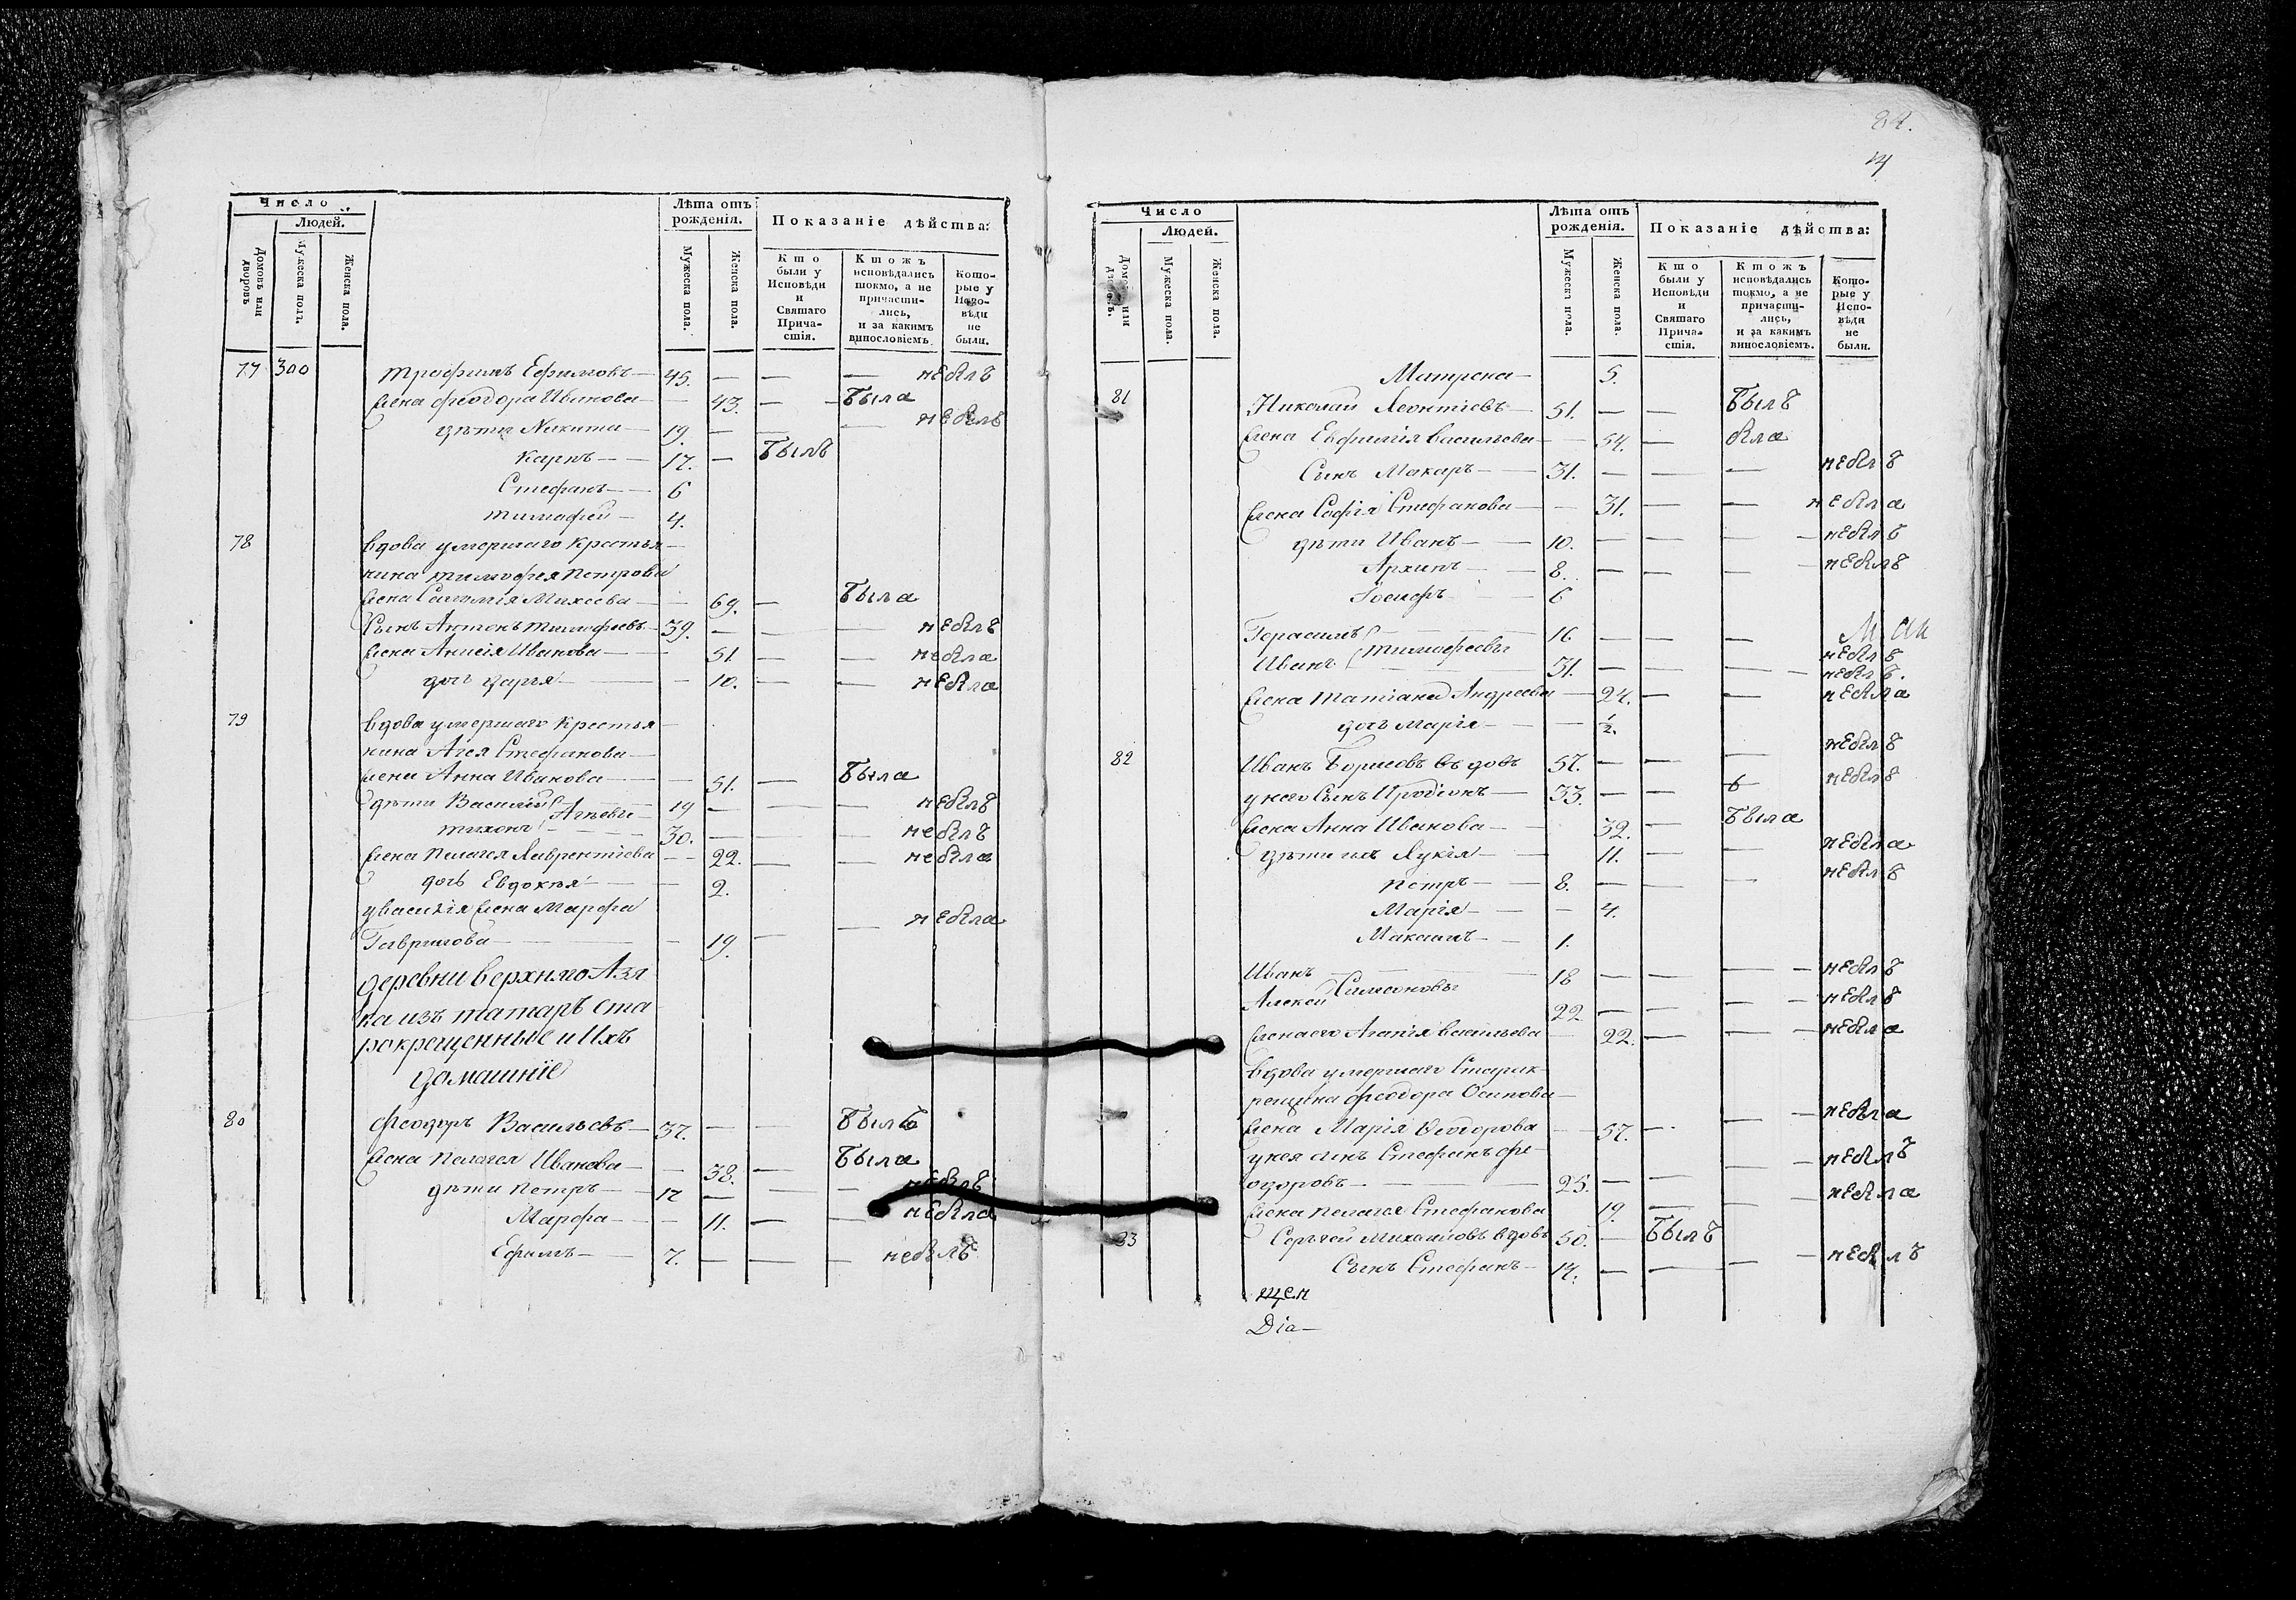 Число
Людей.
Домовъ или дворовъ
Мужеска полъ.
Женска пола.
Лѣта отъ рожденія.
Мужеска пола.
Женска пола.
Показаніе дѣйства:
Кто были у Исповѣди и Святаго Причастія.
Ктожъ исповѣдались токмо, а не причастились, и за какимъ винословіемъ.
Которые у Исповѣди не были.
77 300 Трофимъ Ефимовъ — 45. — — — небылъ
Жена Феодора Иванова — — 43. — — была
дѣти Никита — 19. — — — небылъ
Карпъ — — 17. — былъ
Стефанъ — — 6
Тимофей — 4.
78 Вдова умершаго крестья-
нина Тимофея Петрова
Жена Соломія Михеева — — 69. — была
Сынъ Антонъ Тимофеевъ — 39. — — — небылъ
Жена Анисія Иванова — — 51. — — небыла
дочь Дарья — — 10. — — небыла
79 Вдова умершаго крестья-
нина Агея Стефанова —
Жена Анна Иванова — — 51. — была
дѣти Василій Агѣевы — 19 — — — небылъ
Тихонъ — 30. — — — небылъ
Жена Пелагея Лаврентіева — — 22. — — небыла
дочь Евдокѣя — — 2.
у Василія Жена Марфа
Гаврилова — — 19. — — небыла
Деревни Верхняго Азя
ка изъ татаръ ста
рокрещенные и ихъ
домашніе
80 Феодоръ Васильевъ — 37. — — былъ
Жена Пелагея Иванова — — 38. — была
дѣти Петръ — — 17 — — — небылъ
Марфа — — 11. — — небыла
Ефимъ — — 7. — — — небылъ
84.
14
Число
Людей.
Домовъ или дворовъ.
Мужеска пола.
Женска пола.
Лѣта отъ рожденія.
Мужеска пола.
Женска пола.
Показаніе дѣйства:
Кто были у Исповѣди и Святаго Причастія.
Ктожъ исповѣдались токмо, а не причастились, и за какимъ винословіемъ.
Которые у Исповѣди не были.
Матрена — 5.
81 Николай Леонтіевъ — 51. — — былъ
Жена Евфимія Васильева — — 54. — была
Сынъ Макаръ — — 31. — — — небылъ
Жена Софія Стефанова — — 31. — — небыла
дѣти Иванъ — — 10. — — — небылъ
Архипъ — — 8. — — — небылъ
Іосифъ — — 6
Герасимъ 16. — — —
Иванъ Тимофеевы 31. — — — небылъ
небылъ.
Жена Татіана Андреева — 24. — — небыла
дочь Марія — — ½.
82 Иванъ Борисовъ вдовъ 57. — — — небылъ
у него Сынъ Иродіонъ — 33. — — небылъ
Жена Анна Иванова — 32. — была
дѣти ихъ Лукія — 11. — — небыла
Петръ — — 8. — — — небылъ
Марія — — — 4.
Максимъ — — 1.
Иванъ Симеоновы 18 — — — небылъ
Алексѣй 22 — — — небылъ
Жена его Агапія Васильева 22. — — небыла
Вдова умершаго Старик-
рещена Феодора Осипова —
Жена Марія Феодорова — 57. — — небыла
у нея сынъ Стефанъ Фе-
одоровъ — 25. — — — небылъ
Жена Пелагея Стефанова 19. — — небыла
83 Сергѣй Михайловъ вдовъ 50. — былъ
Сынъ Стефанъ — 14. — — — небылъ
Діа—